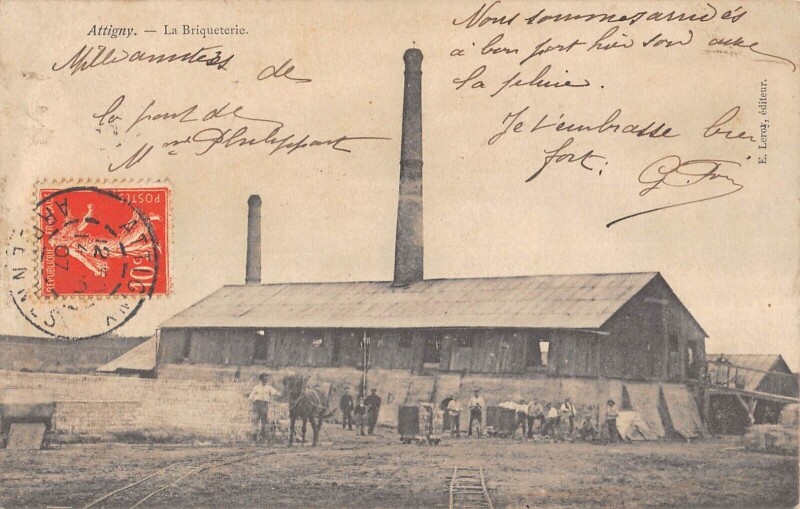 Attigny. — La Briqueterie.
Mille amitiés de
la part de
Mme Philippart
Nous sommes arrivés
à bon port hier soir avec
la pluie.
Je t'embrasse bien
fort.
E. Leroy, éditeur.
POSTES
RÉPUBLIQUE FRANÇAISE
10c
ATTIGNY
ARDENNES
07